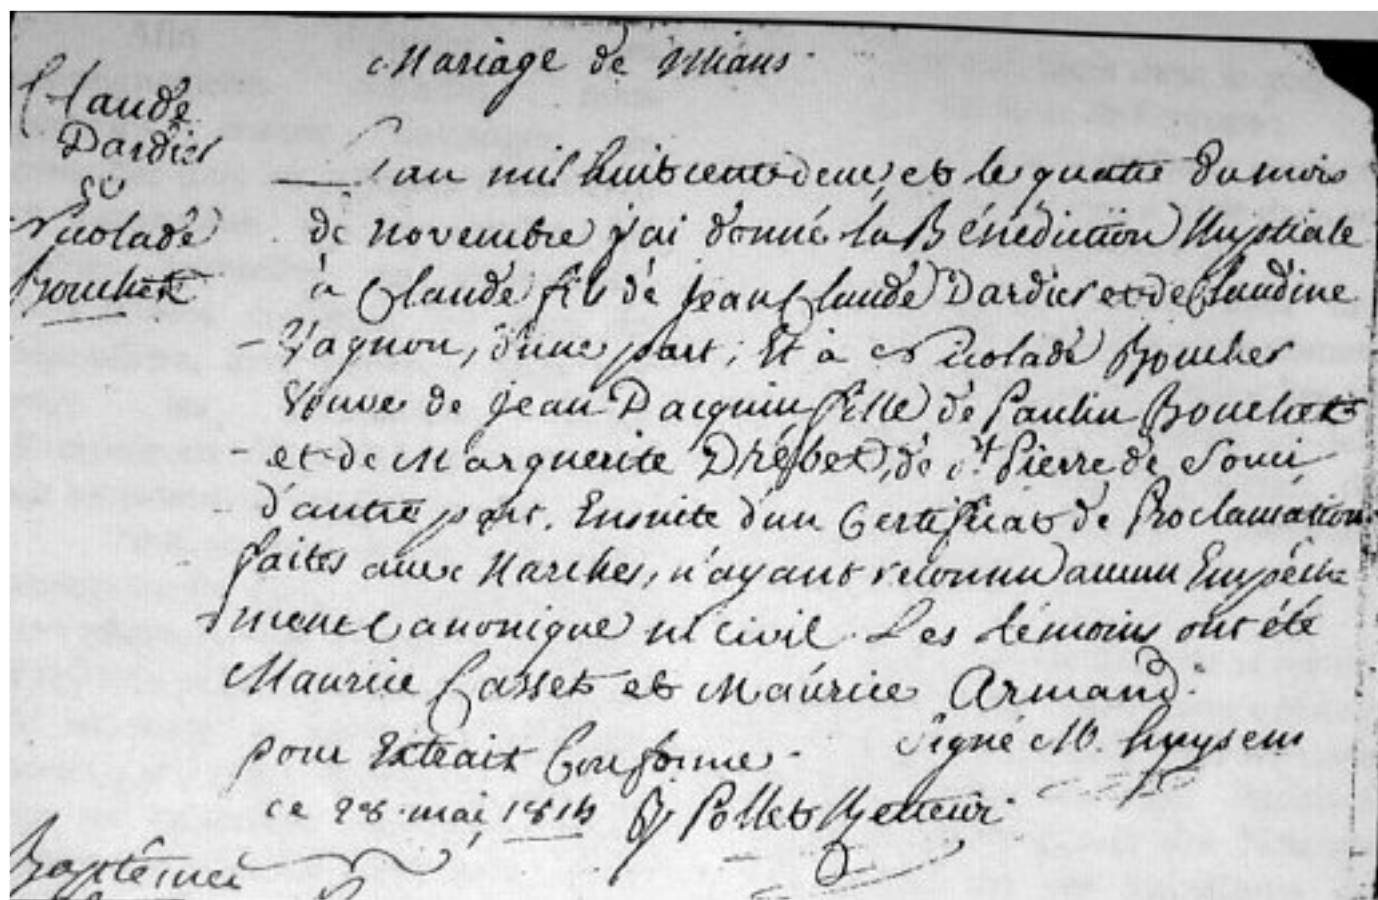 Mariage de Mians
Claude
Dardier
et
Nicolade
Bouchet
L'an mil huit cent deux et le quatre du mois
de Novembre j'ai donné la Bénédiction Nuptiale
à Claude fils de Jean Claude Dardier et de Claudine
Vagnon, d'une part; Et à Nicolade Boucher
Veuve de Jean Dacquin fille de Paulin Bouchet
et de Marguerite Drébet, de St Pierre de Souci
d'autre part. Ensuite d'un Certificat de Proclamation
faites aux Marches, n'ayant reconnu aucun Empêche
ment Canonique ni civil. Les témoins ont été
Maurice Cassets et Maurice Armand
Signé M.
pour Extrait Conforme
ce 28 mai 1814 Pollet Recteur
Baptêmes